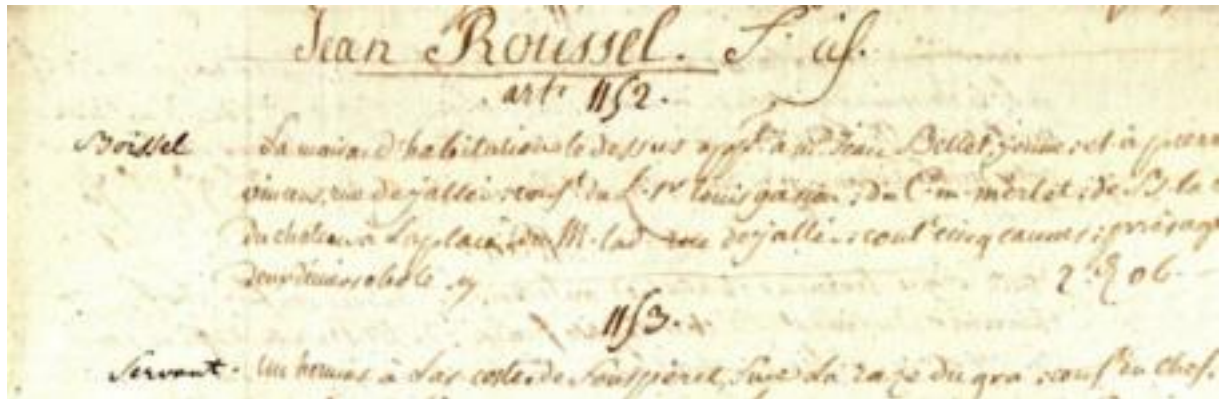 Jean Roussel.
art. 1152.
Boissel La maison d'habitation le dessus app.t à m.r Jean Bellet jeune, et à pierre
vincens, rue de jallés, conf.t du louis gaston, du C. m. merlet, de B. la
du chateau à la place, du M. lad. rue de jallés, cont. cinq cannes, présage
deux deniers obole cy 2.d ob
1153.
Servant. Un hermes à las costes de Souspieres, sive la raze du gra, conf. du chef.